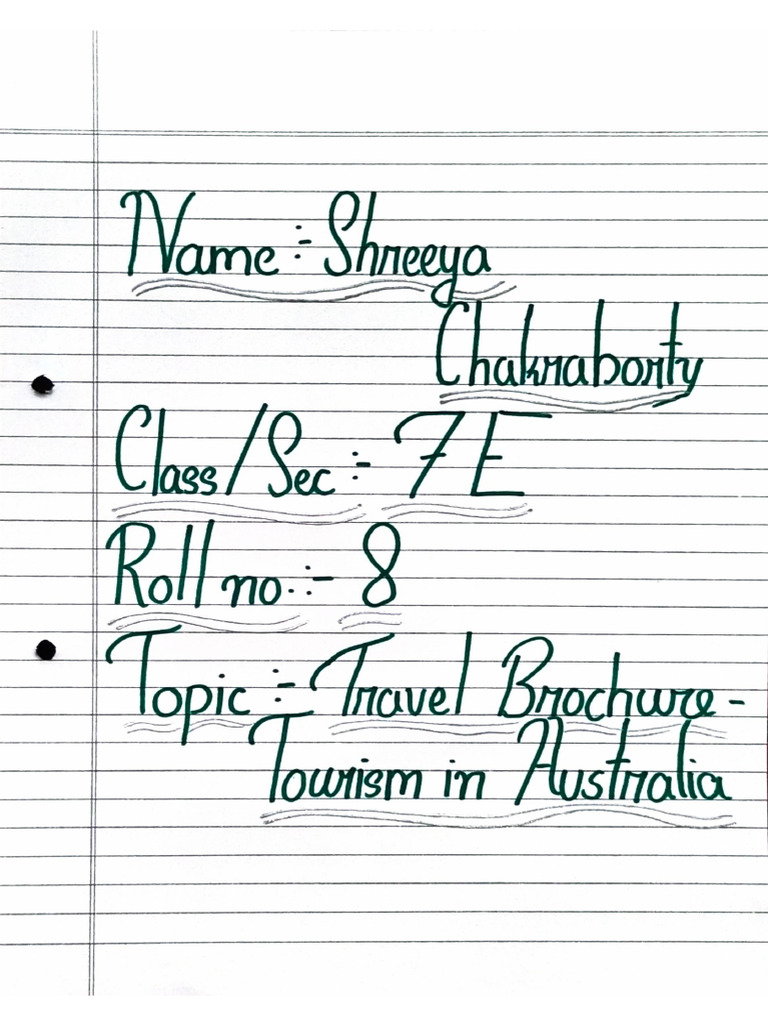 Name :- Shreeya
Chakraborty
Class/Sec :- 7E
Roll no. :- 8
Topic :- Travel Brochure -
Tourism in Australia